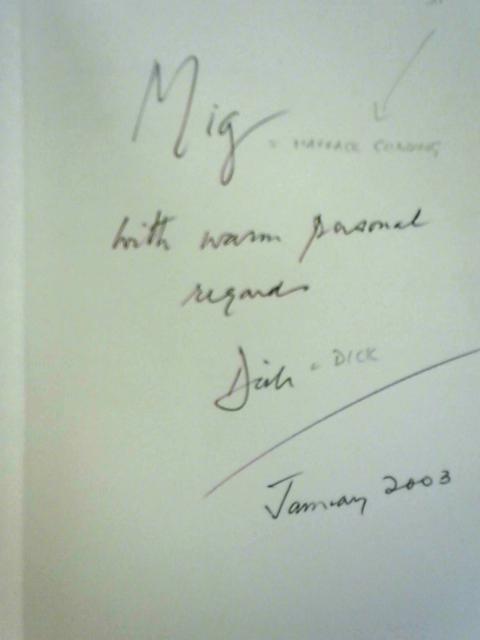 Mig = MARRACK GOULDING
with warm personal
regards
Dick = DICK
January 2003